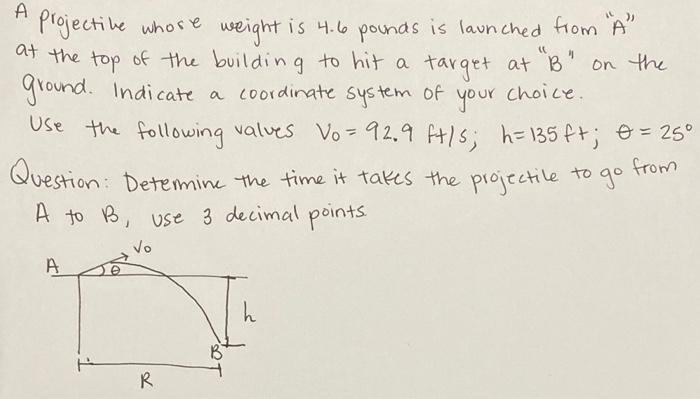 A projectile whose weight is 4.6 pounds is launched from "A"
at the top of the building to hit a target at "B" on the
ground. Indicate a coordinate system of your choice.
Use the following values Vo = 92.9 ft/s; h=135 ft; θ = 25°
Question: Determine the time it takes the projectile to go from
A to B, use 3 decimal points.
Vo
A θ
h
B
R